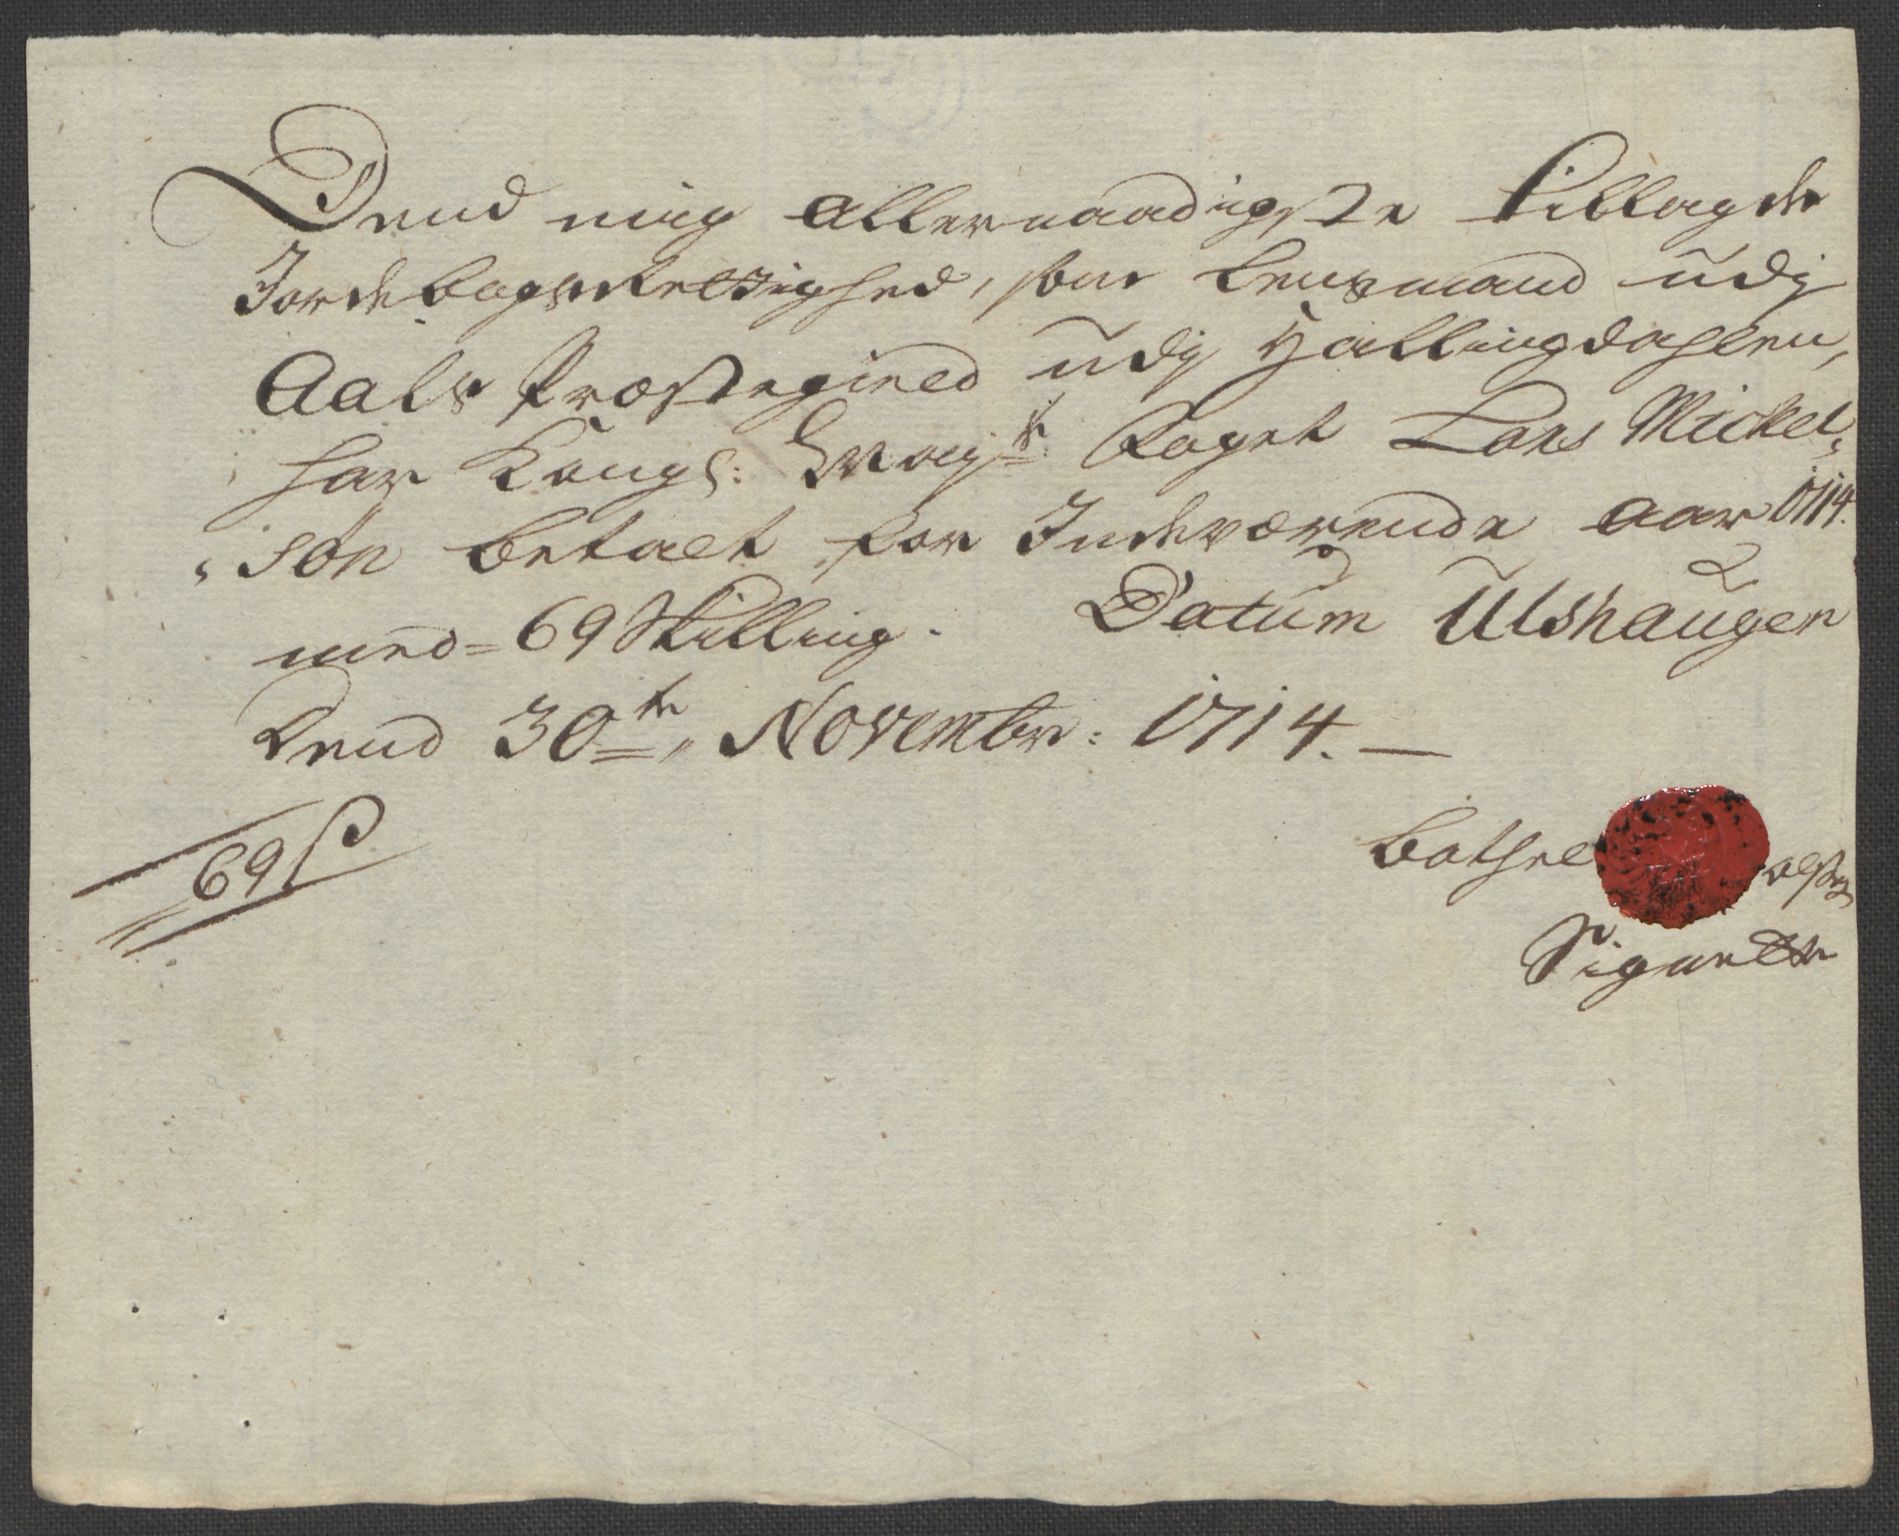 Dend mig Allernaadigste tillagde
Jordebogs Rettighed, som Lensmand udj
Aals Præstegield udj Hallingdahlen,
har Kongl: May:ts Foget Lars Mickel-
sön betalt for Indeværende Aar 1714.
med = 69 Skilling. Datum Ulshaugen
Dend 30te, Novembr: 1714. —
69 s
Signette